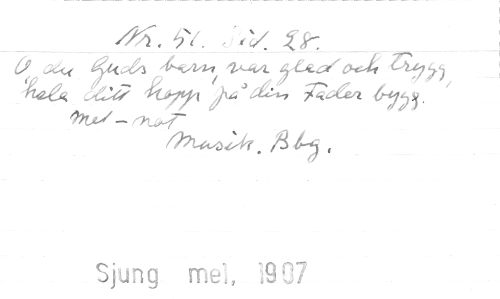 Nr. 51. Sid. 28.
O, du Guds barn, var glad och trygg,
hela ditt hopp på din Fader bygg.
Med - not
Musik. Bbg.
Sjung mel, 1907